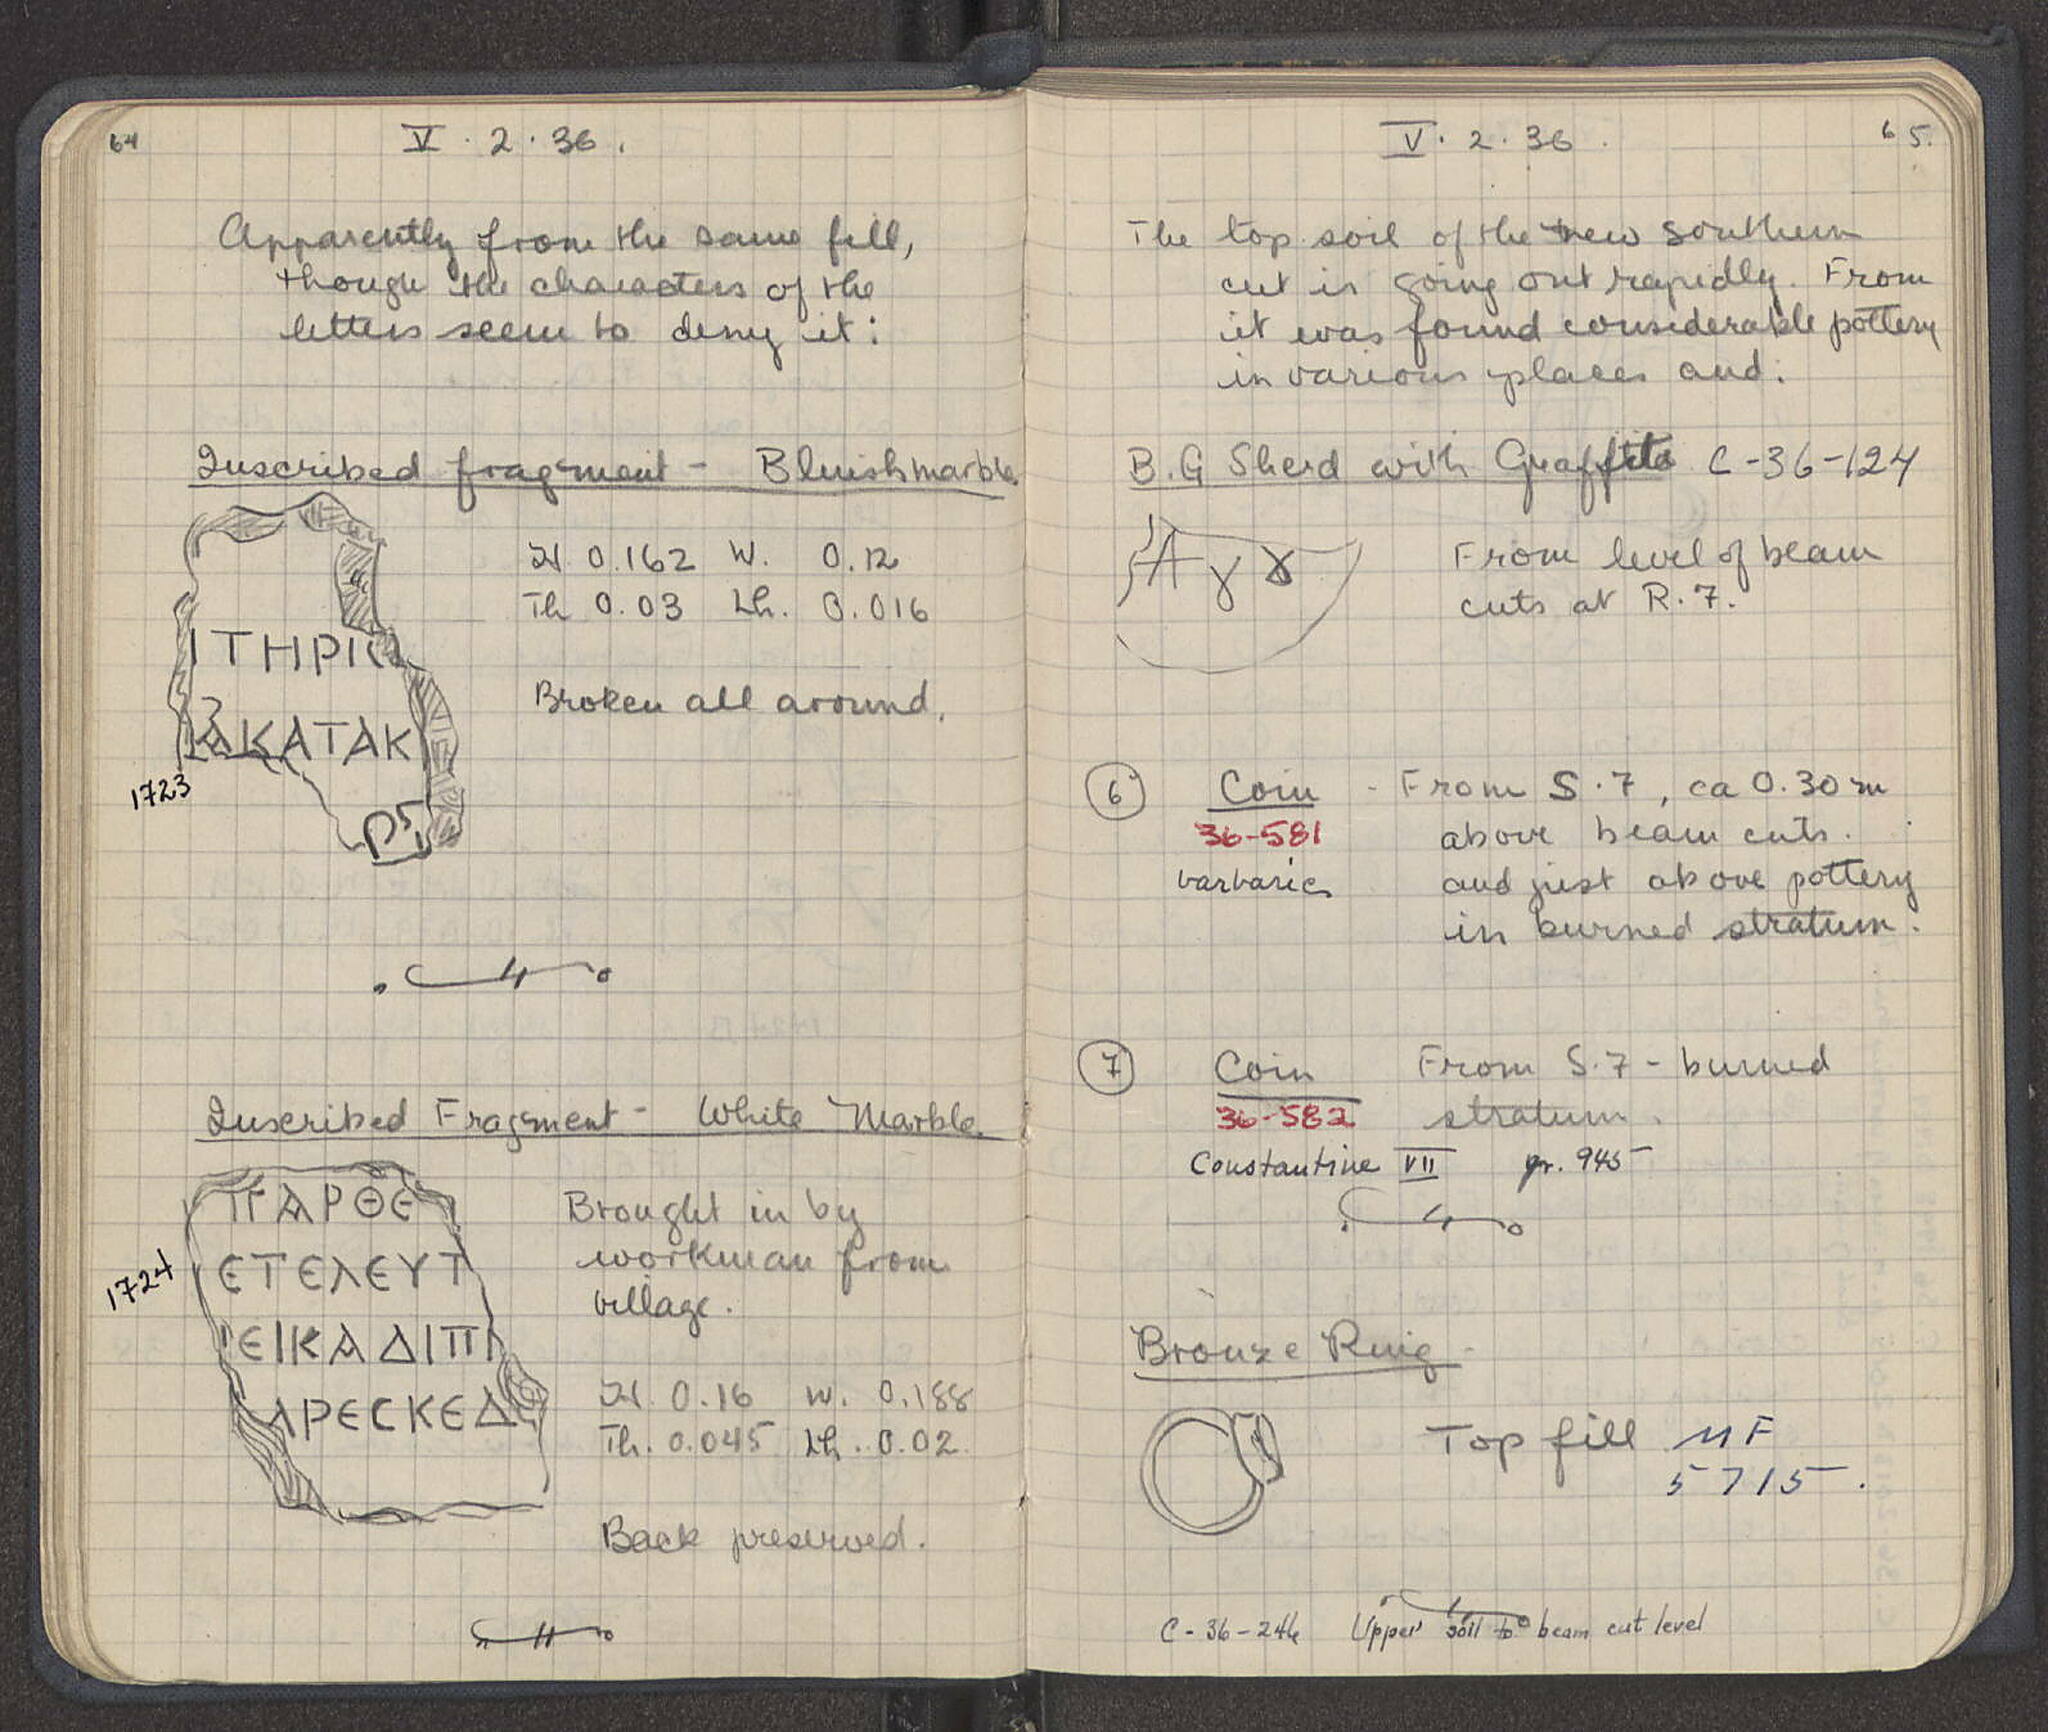 64
V . 2 . 36 .
Apparently from the same fill,
though the characters of the
letters seem to deny it:
Inscribed fragment - Bluish marble
H 0.162 W. 0.12
Th 0.03 Lh. 0.016
ΙΤΗΡΙ
Broken all around.
ΑΚΑΤΑΚ
1723
Inscribed Fragment - White Marble
ΠΑΡΘΕ
Brought in by
workman from
village.
ΕΤΕΛΕΥΤ
1724
ΕΙΚΑΔΙΠΙ
H. 0.16 W. 0.188
Th. 0.045 Lh. 0.02
ΑΡΕϹΚΕΔ
Back preserved.
V . 2 . 36 .
65.
The top soil of the new southern
cut is going out rapidly. From
it was found considerable pottery
in various places and:
B.G Sherd with Graffito C-36-124
Α γ 8
From level of beam
cuts at R.7.
6 Coin - From S.7, ca 0.30 m
36-581 above beam cuts.
barbaric and just above pottery
in burned stratum.
7 Coin From S.7 - burned
36-582 stratum.
Constantine VII pr. 945
Bronze Ring -
Top fill MF
5715.
Upper soil to beam cut level